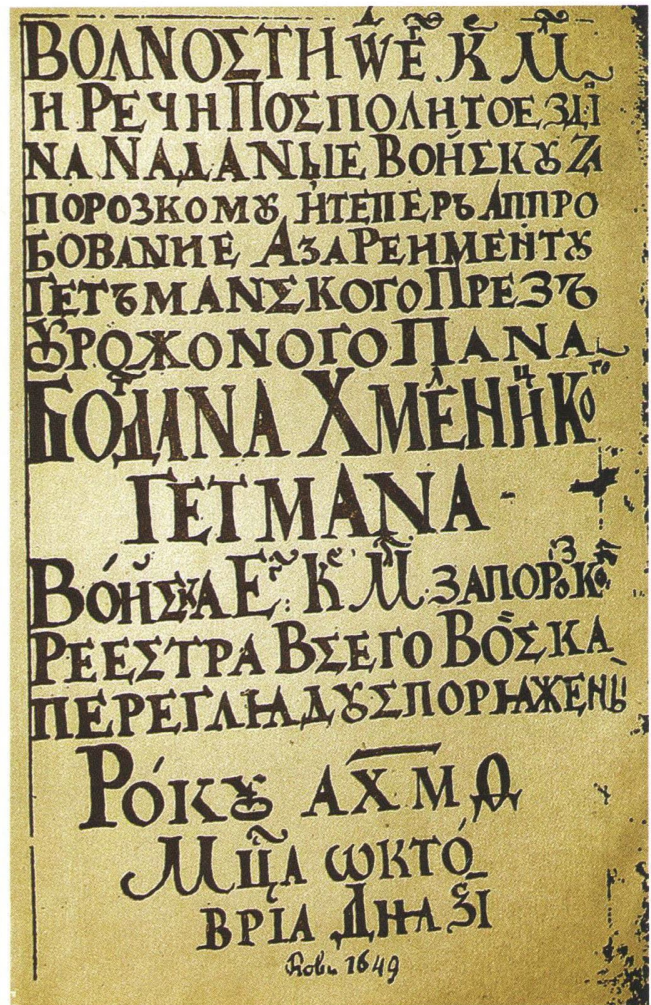 ВОЛNОСТИ ѾЕ҃ К҃ М҃Л
И РЕЧИ ПОСПОЛИТОЕ ЗДА
NА NАДАNЫЕ ВОЙСКꙋ ZА
ПОРОЗКОМꙋ И ТЕПЕРЪ АППРО
БОВАNИЕ А ЗА РЕИМЕНТꙋ
ГЕТЪМАNСКОГО ПРЕЗЪ
ꙋРОЖОNОГО ПАNА
БОГДАNА ХМЕЛNИЦКОГО
ГЕТМАNА
ВОЙСКА Е: К М ЗАПОРОЗКО
РЕЕСТРА ВСЕГО ВОЙСКА
ПЕРЕГЛꙖДꙋ СПОРꙖЖЕНЫЙ
РО́Кꙋ АХМѲ
МЦ҃А ѠКТО́
ВРІА ДНꙖ Ѕ҃І
Roku 1649